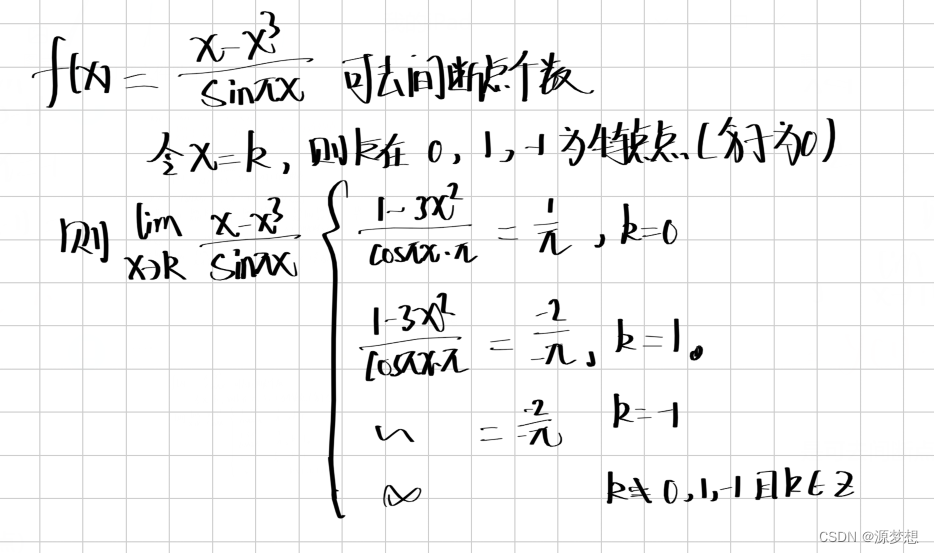 f(x) = \frac{x-x^3}{\sin πx} 可去间断点个数
令x=k, 则k在 0, 1, -1 为特殊点(分子为0)
则 \lim_{x→k} \frac{x-x^3}{\sin πx} { \frac{1-3x^2}{\cos πx·π} = \frac{1}{π}, k=0
\frac{1-3x^2}{\cos πx·π} = \frac{-2}{-π}, k=1。
~ = \frac{-2}{-π} k=-1
∞ k≠0,1,-1且k∈Z
CSDN @源梦想